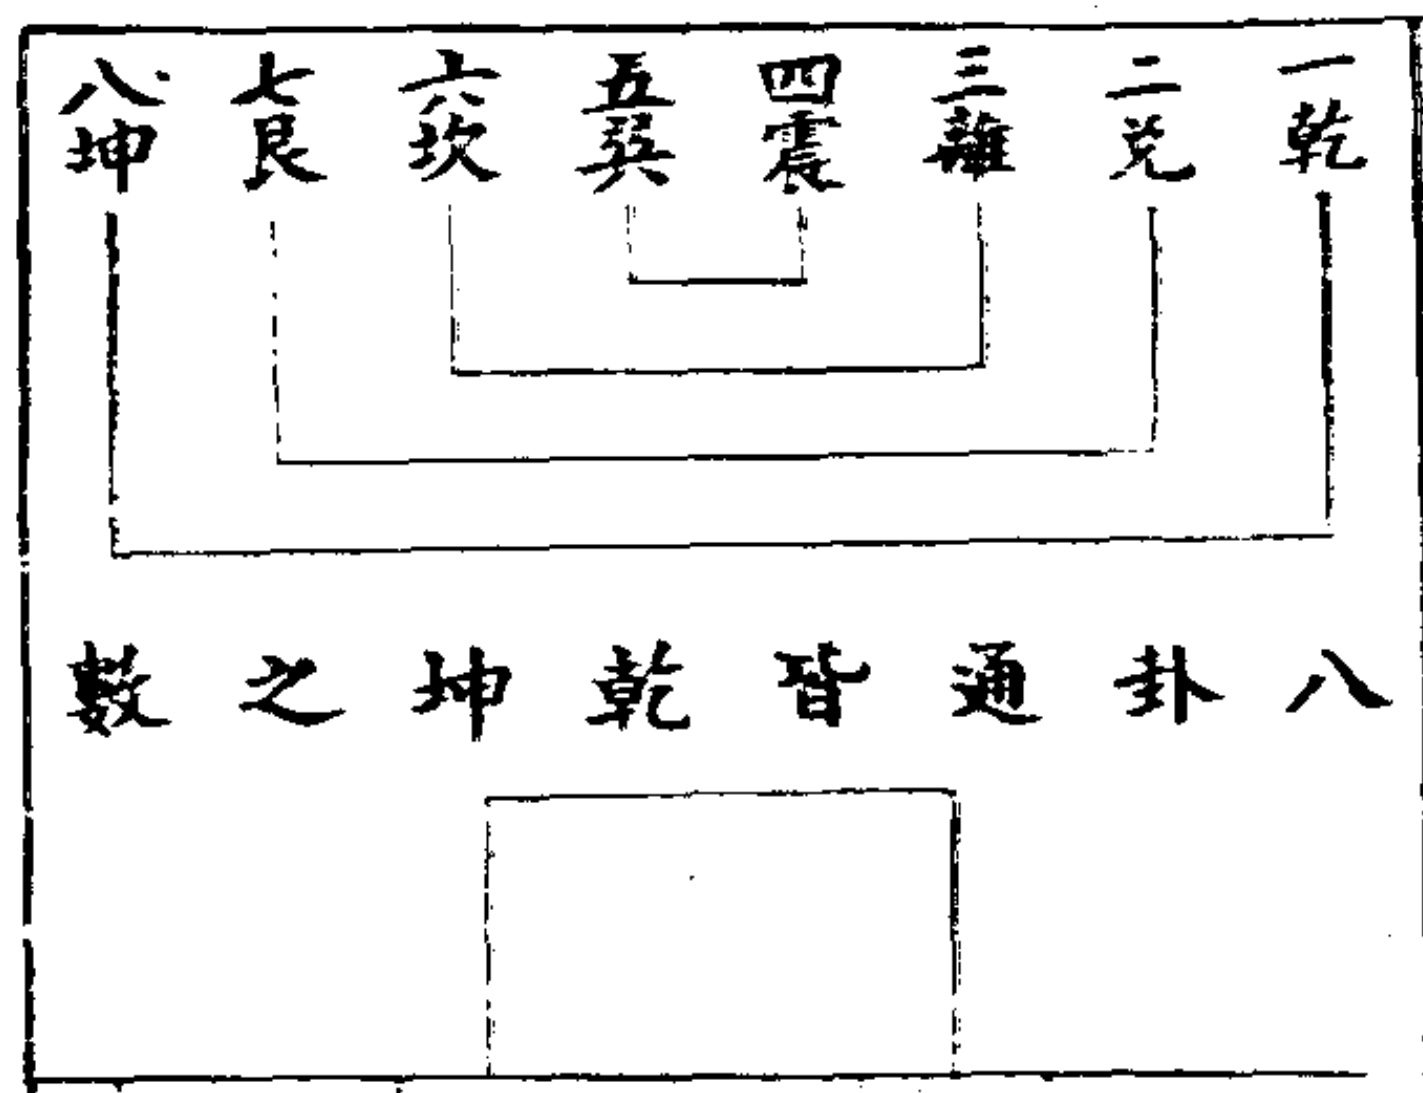 一乾
二兌
三離
四震
五巽
六坎
七艮
八坤
八卦通皆乾坤之數